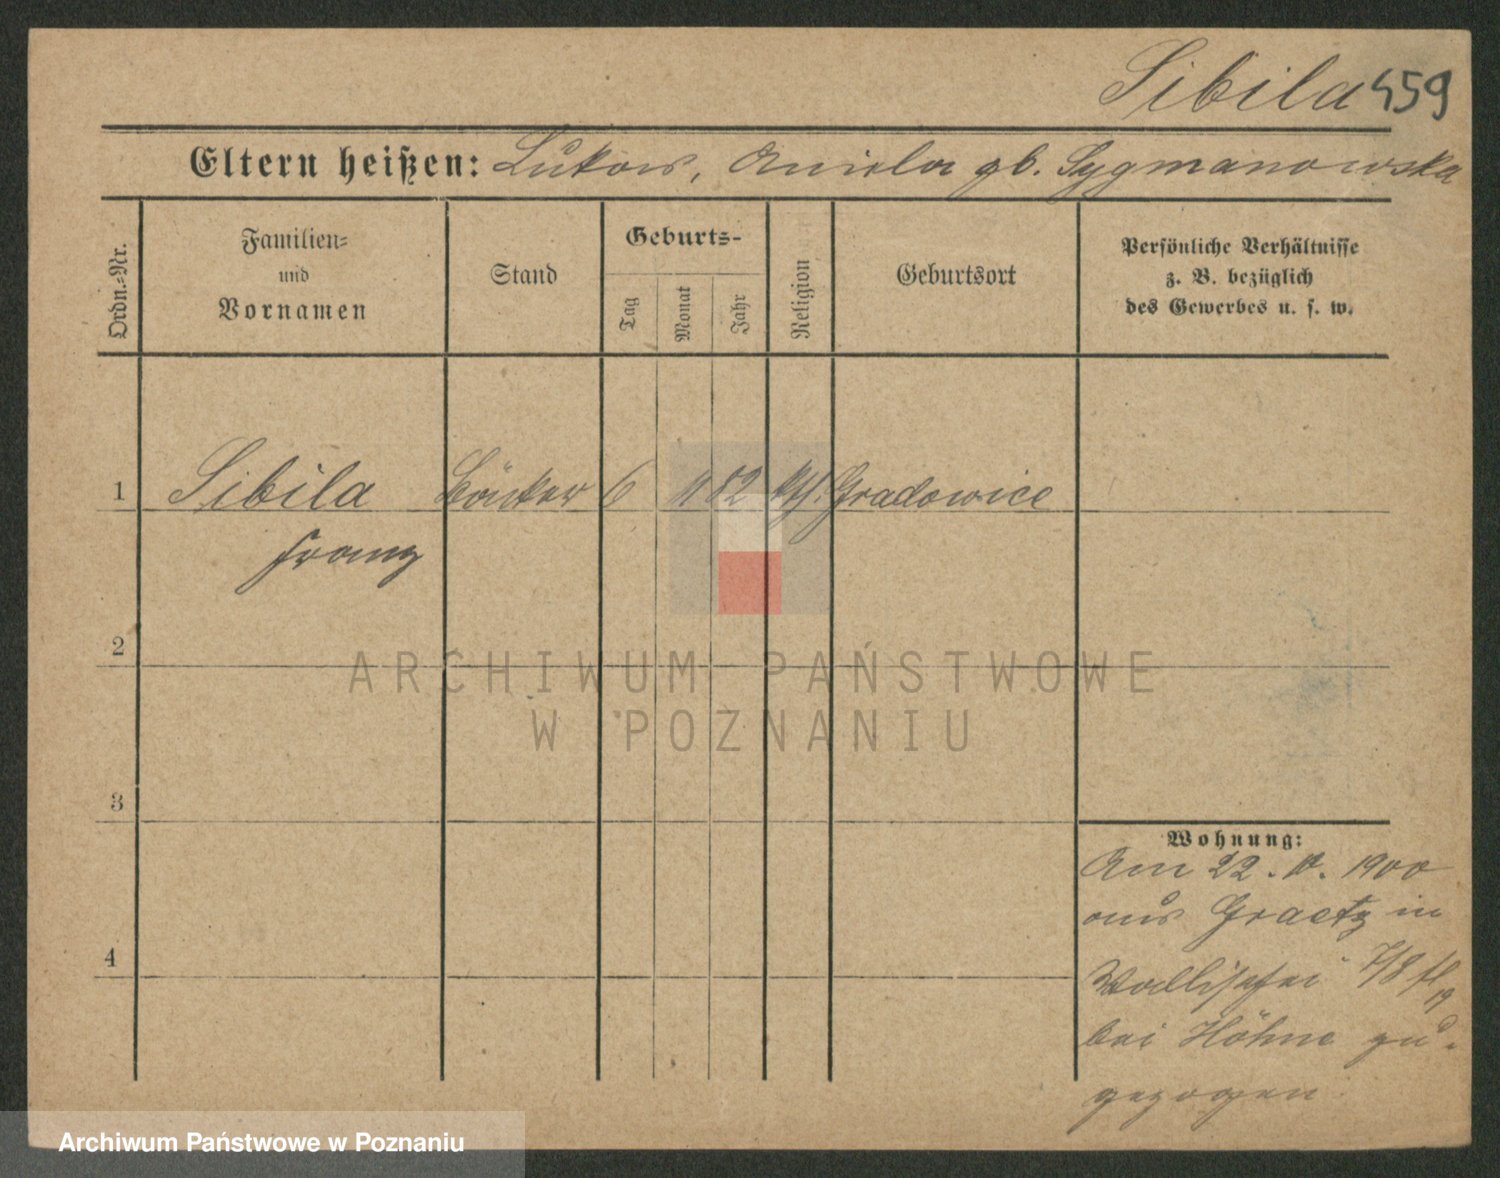 Sibila 459
Eltern heißen: Lukas, Aniela gb. Sygmanowska
Ordn.-Nr.
Familien-
und
Vornamen
Stand
Geburts-
Tag
Monat
Jahr
Religion
Geburtsort
Persönliche Verhältnisse
z. B. bezüglich
des Gewerbes u. s. w.
1 Sibila Bäcker 6 11 82 kth. Gradowice
Franz
2
ARCHIWUM PAŃSTWOWE
W POZNANIU
3
Wohnung:
Am 22. 10. 1900
aus Graetz in
Wallischei 7/8
bei Höhne zu-
gezogen
4
Archiwum Państwowe w Poznaniu